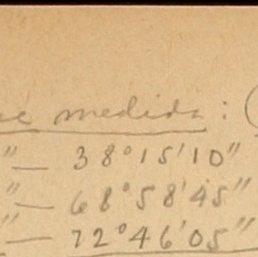 medida: (
"— 38°15'10"
"— 68°58'45"
"— 72°46'05"